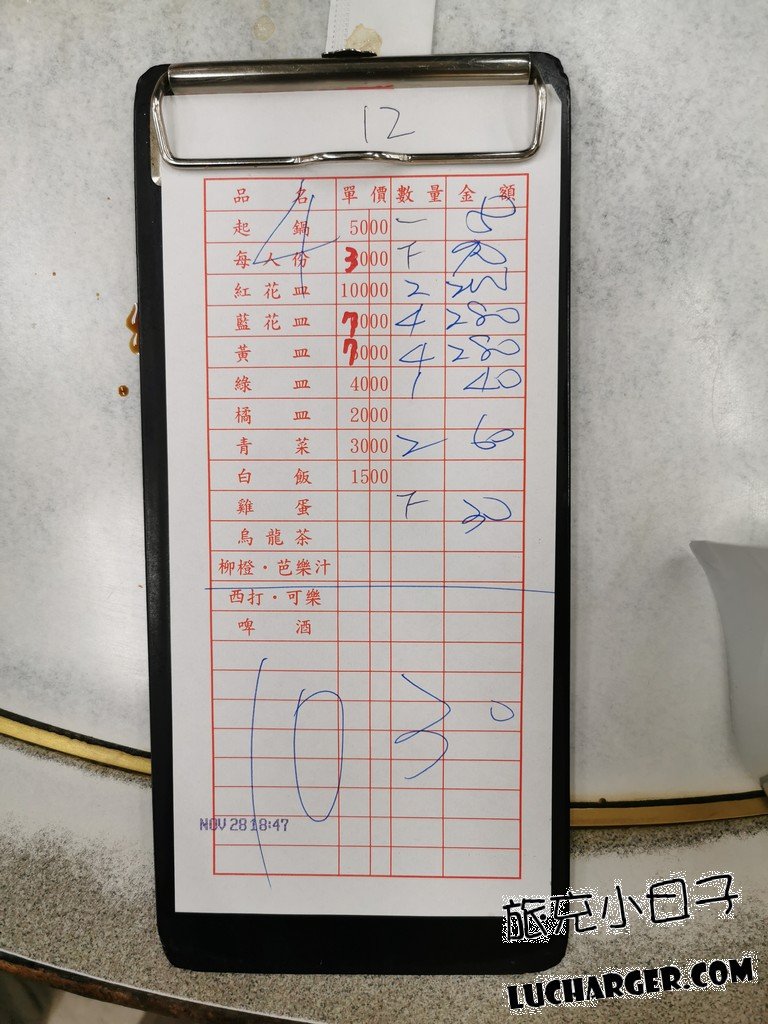 12
品名 單價 數量 金額
4
起鍋 5000 一 50
每人份 3000 下 90
紅花皿 10000 2 200
藍花皿 7000 4 280
黃皿 7000 4 280
綠皿 4000 1 40
橘皿 2000
青菜 3000 2 60
白飯 1500
雞蛋 下 30
烏龍茶
柳橙·芭樂汁
西打·可樂
啤酒
1030
NOV 28 18:47
旅充小日子
LUCHARGER.COM